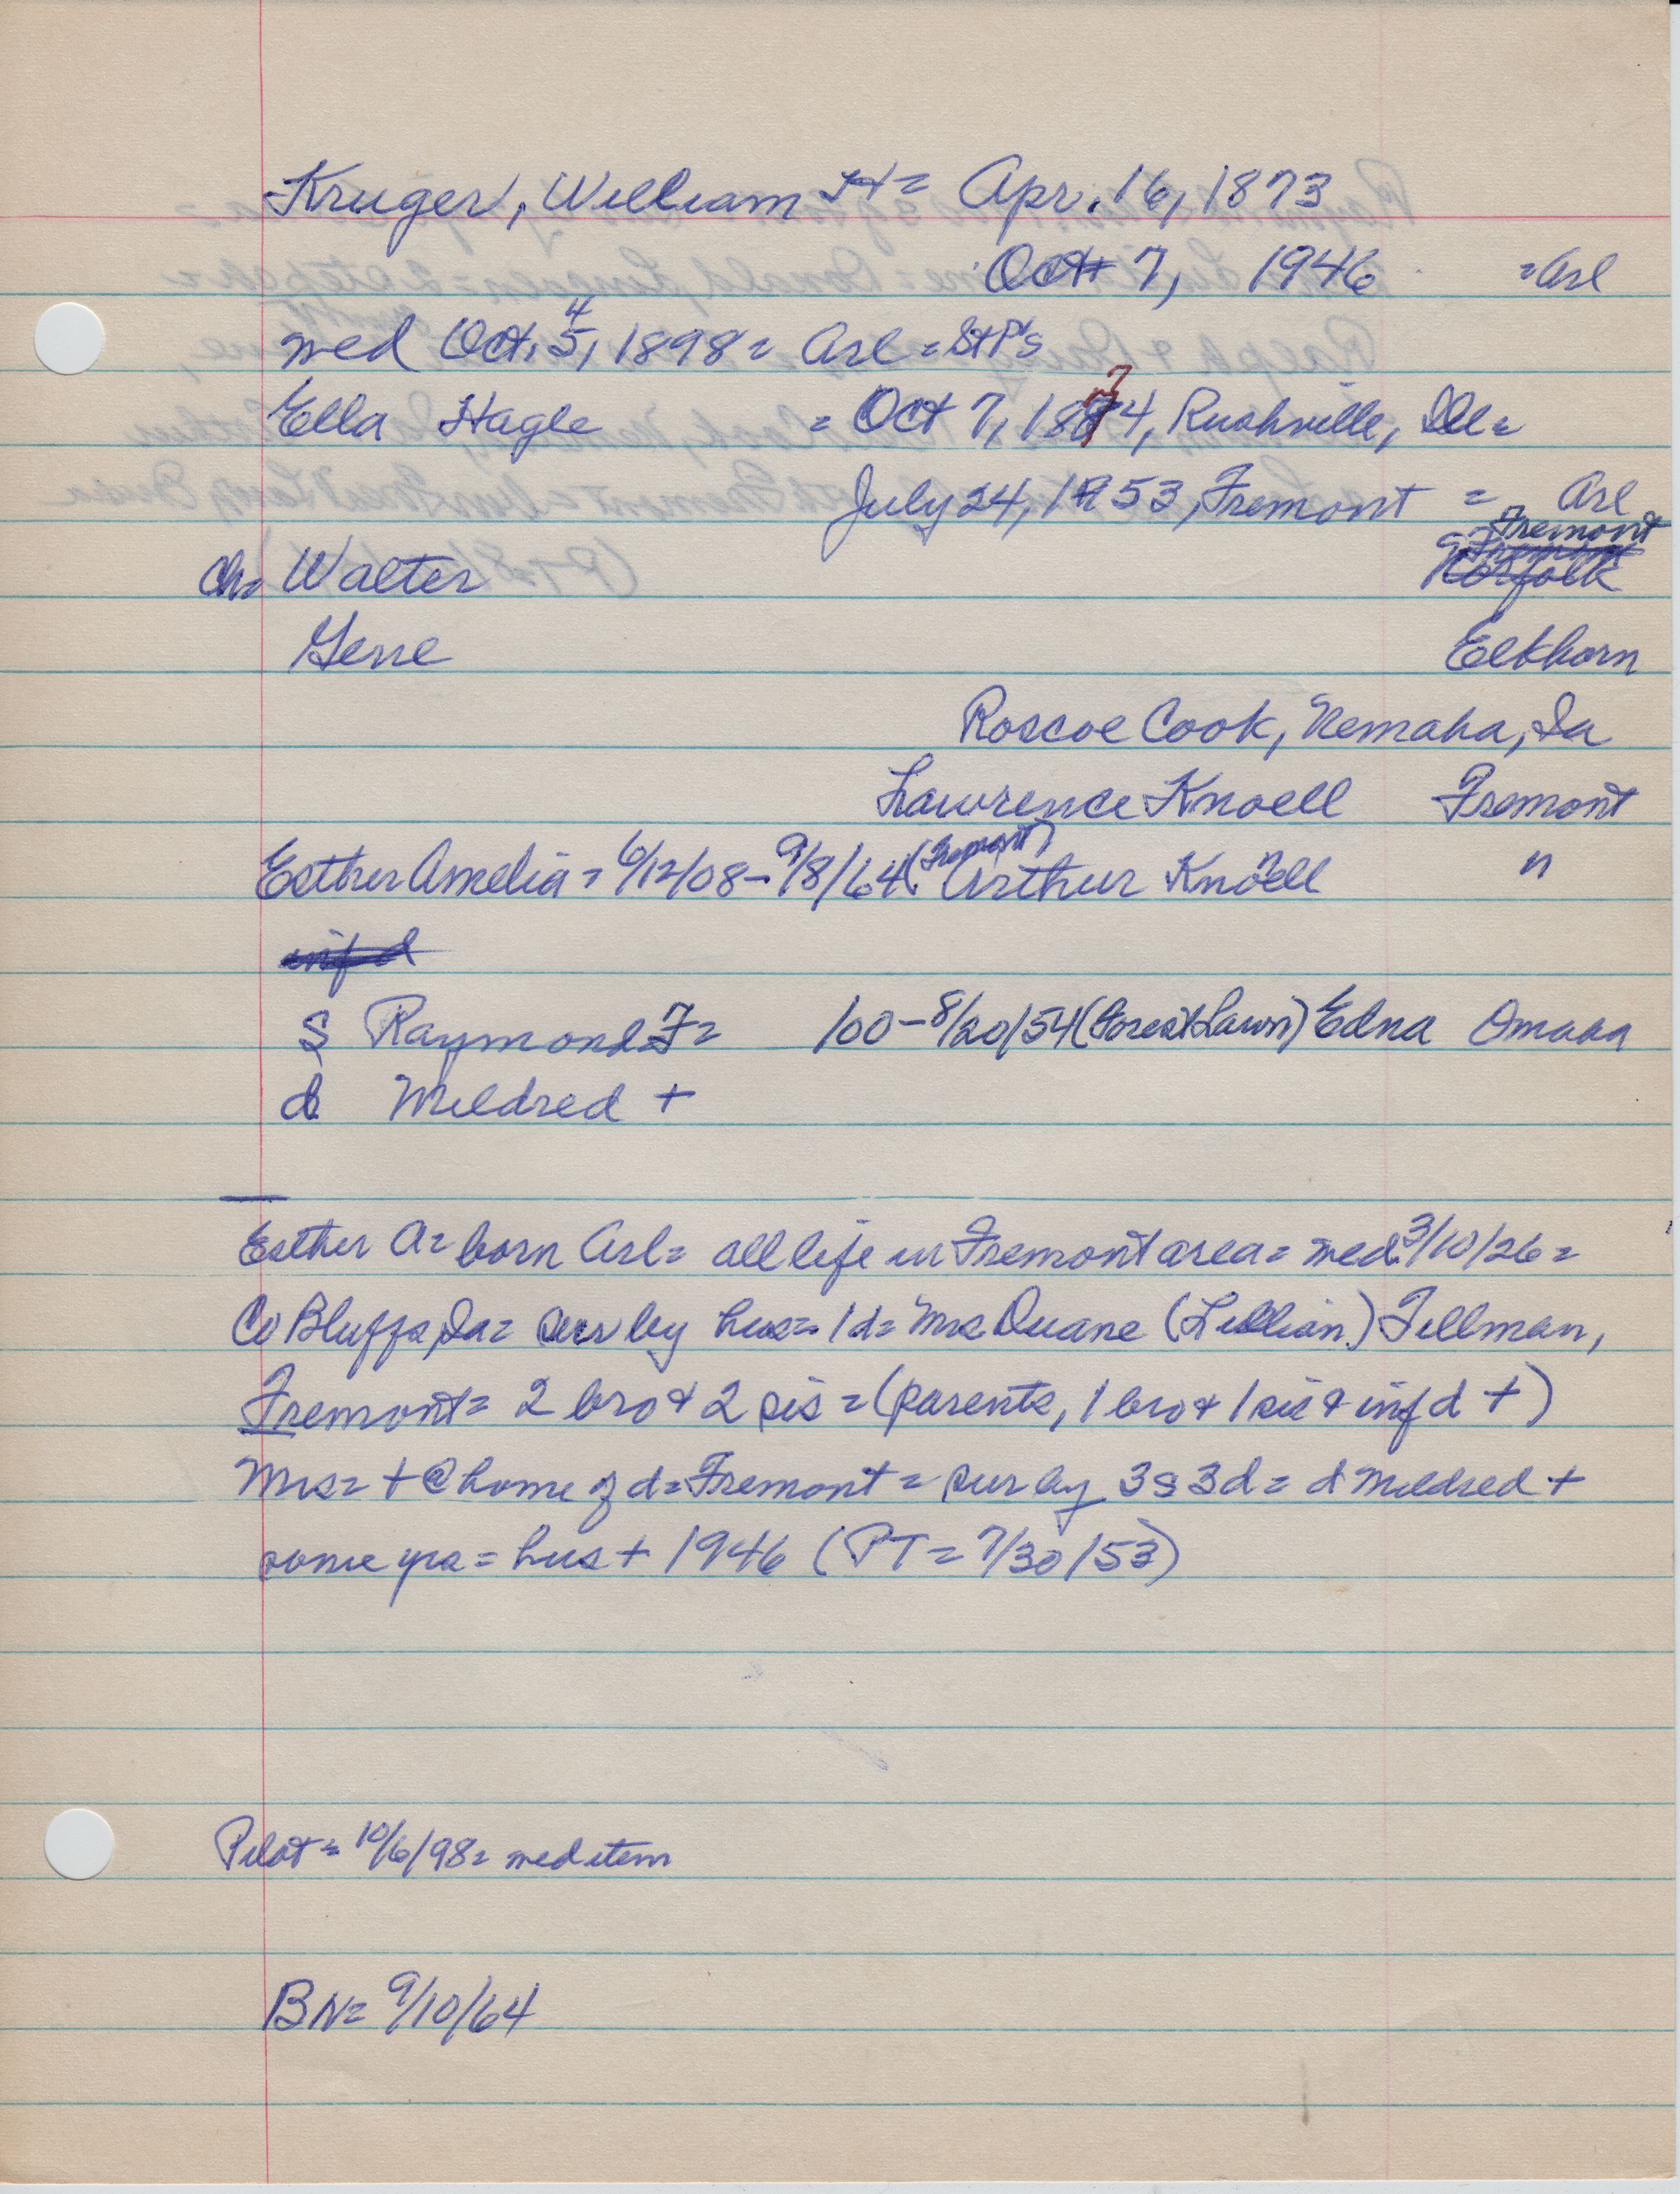 Kruger, William H = Apr. 16, 1873
Oct 7, 1946 = Arl
med Oct. 5, 4 1898 = Arl = St P's
Ella Hagle = Oct 7, 1874, Rushville, Ill =
July 24, 1953, Fremont = Arl
Fremont
Ch = Walter Norfolk
Gene Elkhorn
Roscoe Cook, Nemaha, Ia
Lawrence Knoell Fremont
Esther Amelia = 6/12/08 - 9/8/64 (Fremont) Arthur Knoell "
inf d
S Raymond F = /00 - 8/20/54 (Forest Lawn) Edna Omaha
d Mildred +
Esther A = born Arl = all life in Fremont area = med 3/10/26 =
Co Bluffs, Ia = sur by hus = 1 d = Mrs Duane (Lillian) Tillman,
Fremont = 2 bro & 2 sis = (parents, 1 bro & 1 sis & inf d +)
Mrs = + @ home of d = Fremont = sur by 3 s 3 d = d Mildred +
some yrs = hus + 1946 (PT = 7/30/53)
Pilot = 10/6/98 = med item
BN = 9/10/64